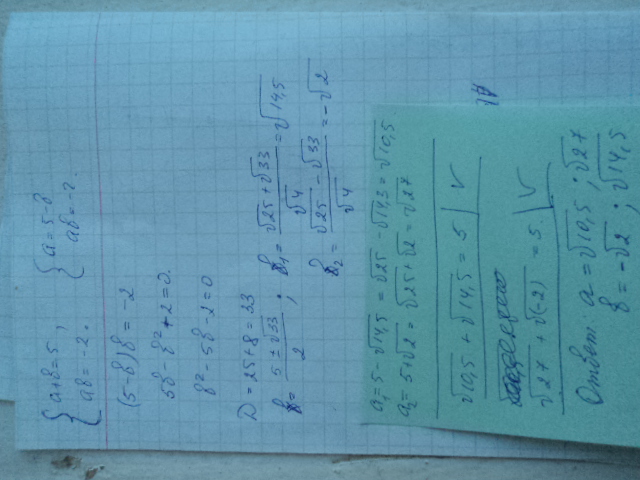 { a+b=5, { a=5-b
ab=-2. ab=-2.
(5-b)b=-2
5b-b²+2=0.
b²-5b-2=0
D=25+8=33
b=(5±√33)/2, b₁=(√25+√33)/√4=√14,5
b₂=(√25-√33)/√4=-√2
a₁=5-√14,5=√25-√14,5=√10,5
a₂=5+√2=√25+√2=√27
√10,5+√14,5=5 | V
√27+√(-2)=5. | V
Ответ: a=√10,5; √27
b=-√2; √14,5